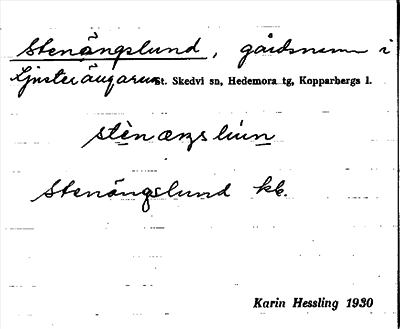 Stenängslund, gårdsnamn i
Ljusterängarna St. Skedvi sn, Hedemora tg, Kopparbergs l.
Stenängslund kb.
Karin Hessling 1930